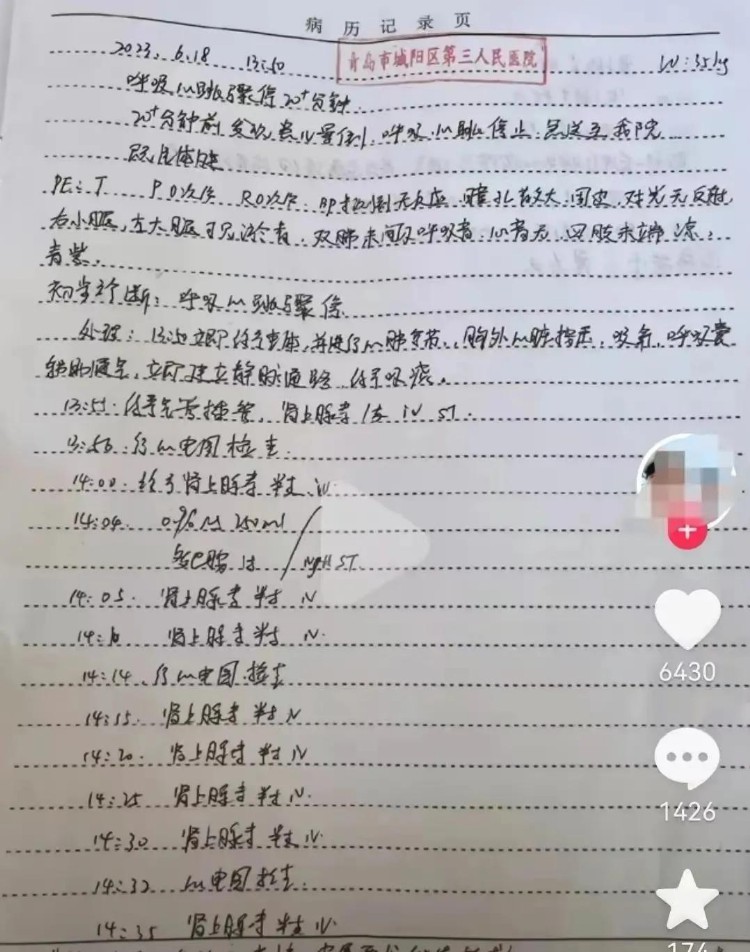 病历记录页
2023.6.18 13:50 青岛市城阳区第三人民医院 W:35kg
呼吸心跳骤停20⁺分钟
20⁺分钟前发现患儿晕倒,呼吸、心跳停止,急送至我院
既往体健
PE:T P0次/分 R0次/分 BP测不到 无反应,瞳孔散大,固定,对光无反射,
右小腿,左大腿可见 双肺未闻及呼吸音,心音无,四肢末端凉,
青紫。
初步诊断:呼吸心跳骤停
处理:13:50立即行心肺复苏,胸外心脏按压,吸氧,呼吸囊
辅助通气,立即建立静脉通路,给予吸痰。
13:51.给予气管插管,肾上腺素1支 iv ST.
13:56.行心电图检查.
14:00.给予肾上腺素半支 iv.
14:04. 0.9% NS 250ml
多巴胺1支 ivgtt ST.
14:05. 肾上腺素半支 iv
14:10 肾上腺素半支 iv.
14:14.行心电图检查
14:15.肾上腺素半支 iv
14:20.肾上腺素半支 iv
14:25 肾上腺素半支 iv.
14:30 肾上腺素半支 iv.
14:32 心电图检查.
14:35 肾上腺素半支 iv.
6430
1426